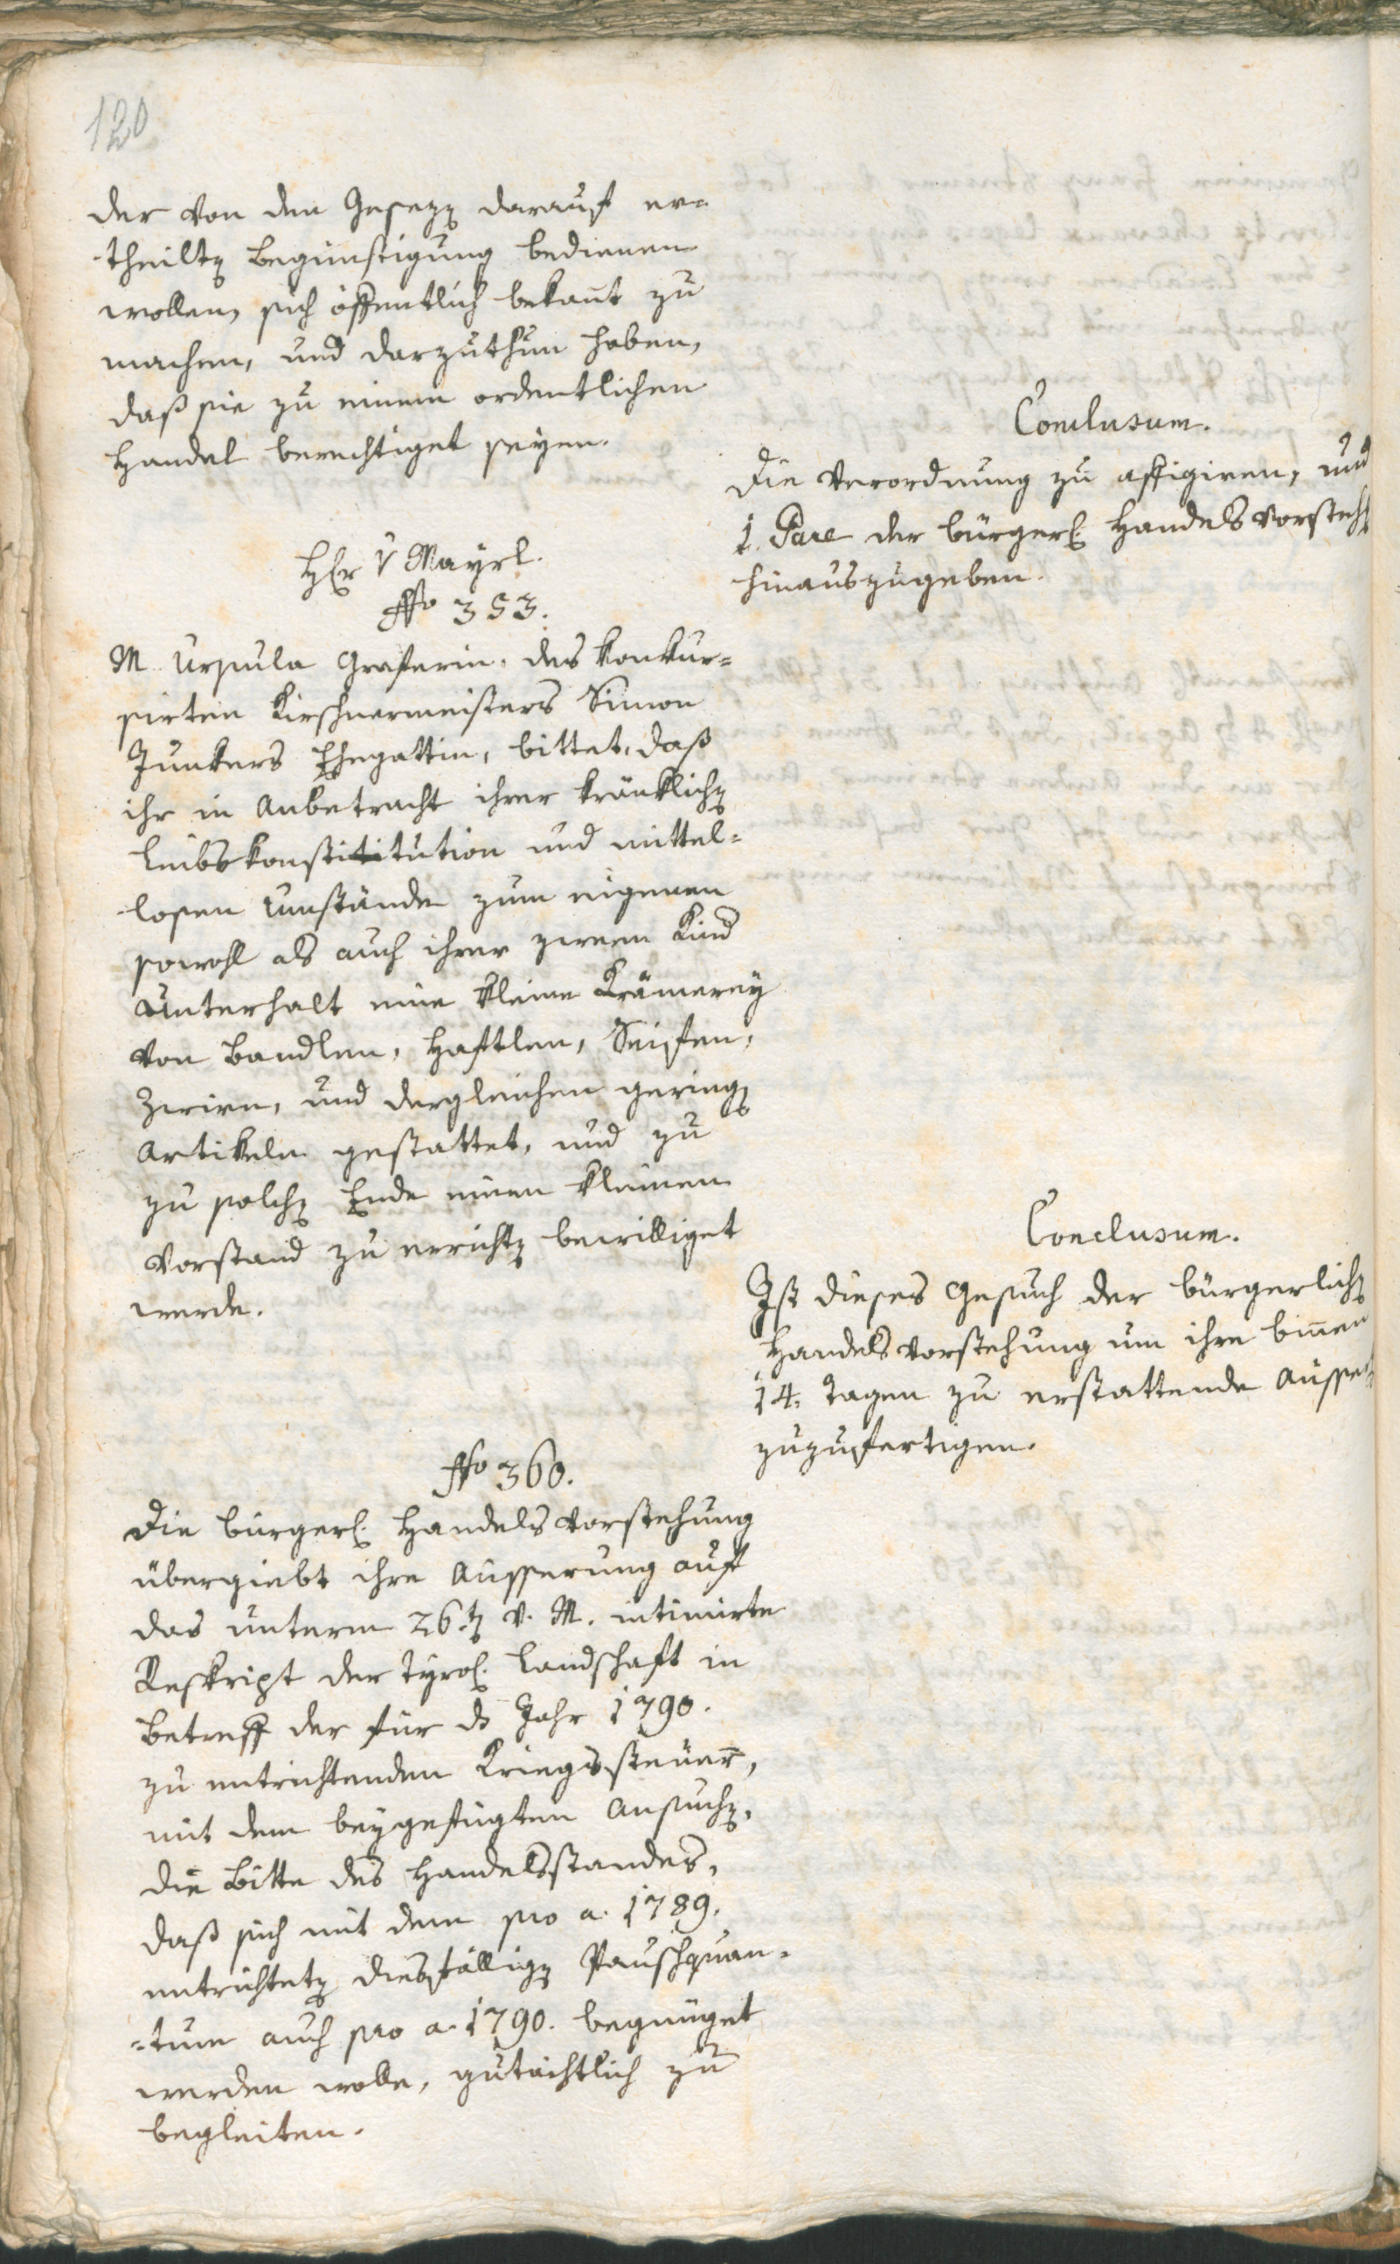 120
der von den Gesezen darauf er-
theilten Begünstigung bedienen
wollen, sich öffentlich bekannt zu
machen, und darzuthun haben,
daß sie zu einem ordentlichen
Handel berechtiget seyen.
Conclusum.
Die Verordnung zu affigiren, und
1. Pare der bürgerl. Handelsvorsteh
hinauszugeben.
Hr v Mayrl.
No 353.
M. Ursula Graserin, des konkur-
sirten Kirschnermeisters Simon
Junkers Ehegattin, bittet, daß
ihr in Anbetracht ihrer kränklichen
Leibskonstititution und mittel-
losen Umstände zum eigenen
sowohl als auch ihrer zween Kind
Unterhalt eine kleine Krämerey
von Bandlen, Haftlen, Seifen,
Zwirn, und dergleichen geringen
Artikeln gestattet, und zu
zu solchen Ende einen kleinen
Vorstand zu errichten bewilliget
werde.
Conclusum.
Ist dieses Gesuch der bürgerlichen
Handelsvorstehung um ihre binnen
14. Tagen zu erstattende Äusser
zuzufertigen.
No 360.
Die bürgerl. Handelsvorstehung
übergiebt ihre Äusserung auf
das unterm 26.ten v. M. intimirte
Reskript der Tyrol. Landschaft in
Betreff der für ds Jahr 1790.
zu entrichtenden Kriegssteuer,
mit dem beygefügten Ansuchen,
die Bitte des Handelsstandes,
daß sich mit dem pro a. 1789.
entrichteten diesfälligen Pauschquan-
-tum auch pro a. 1790. begnüget
werden wolle, gutächtlich zu
begleiten.